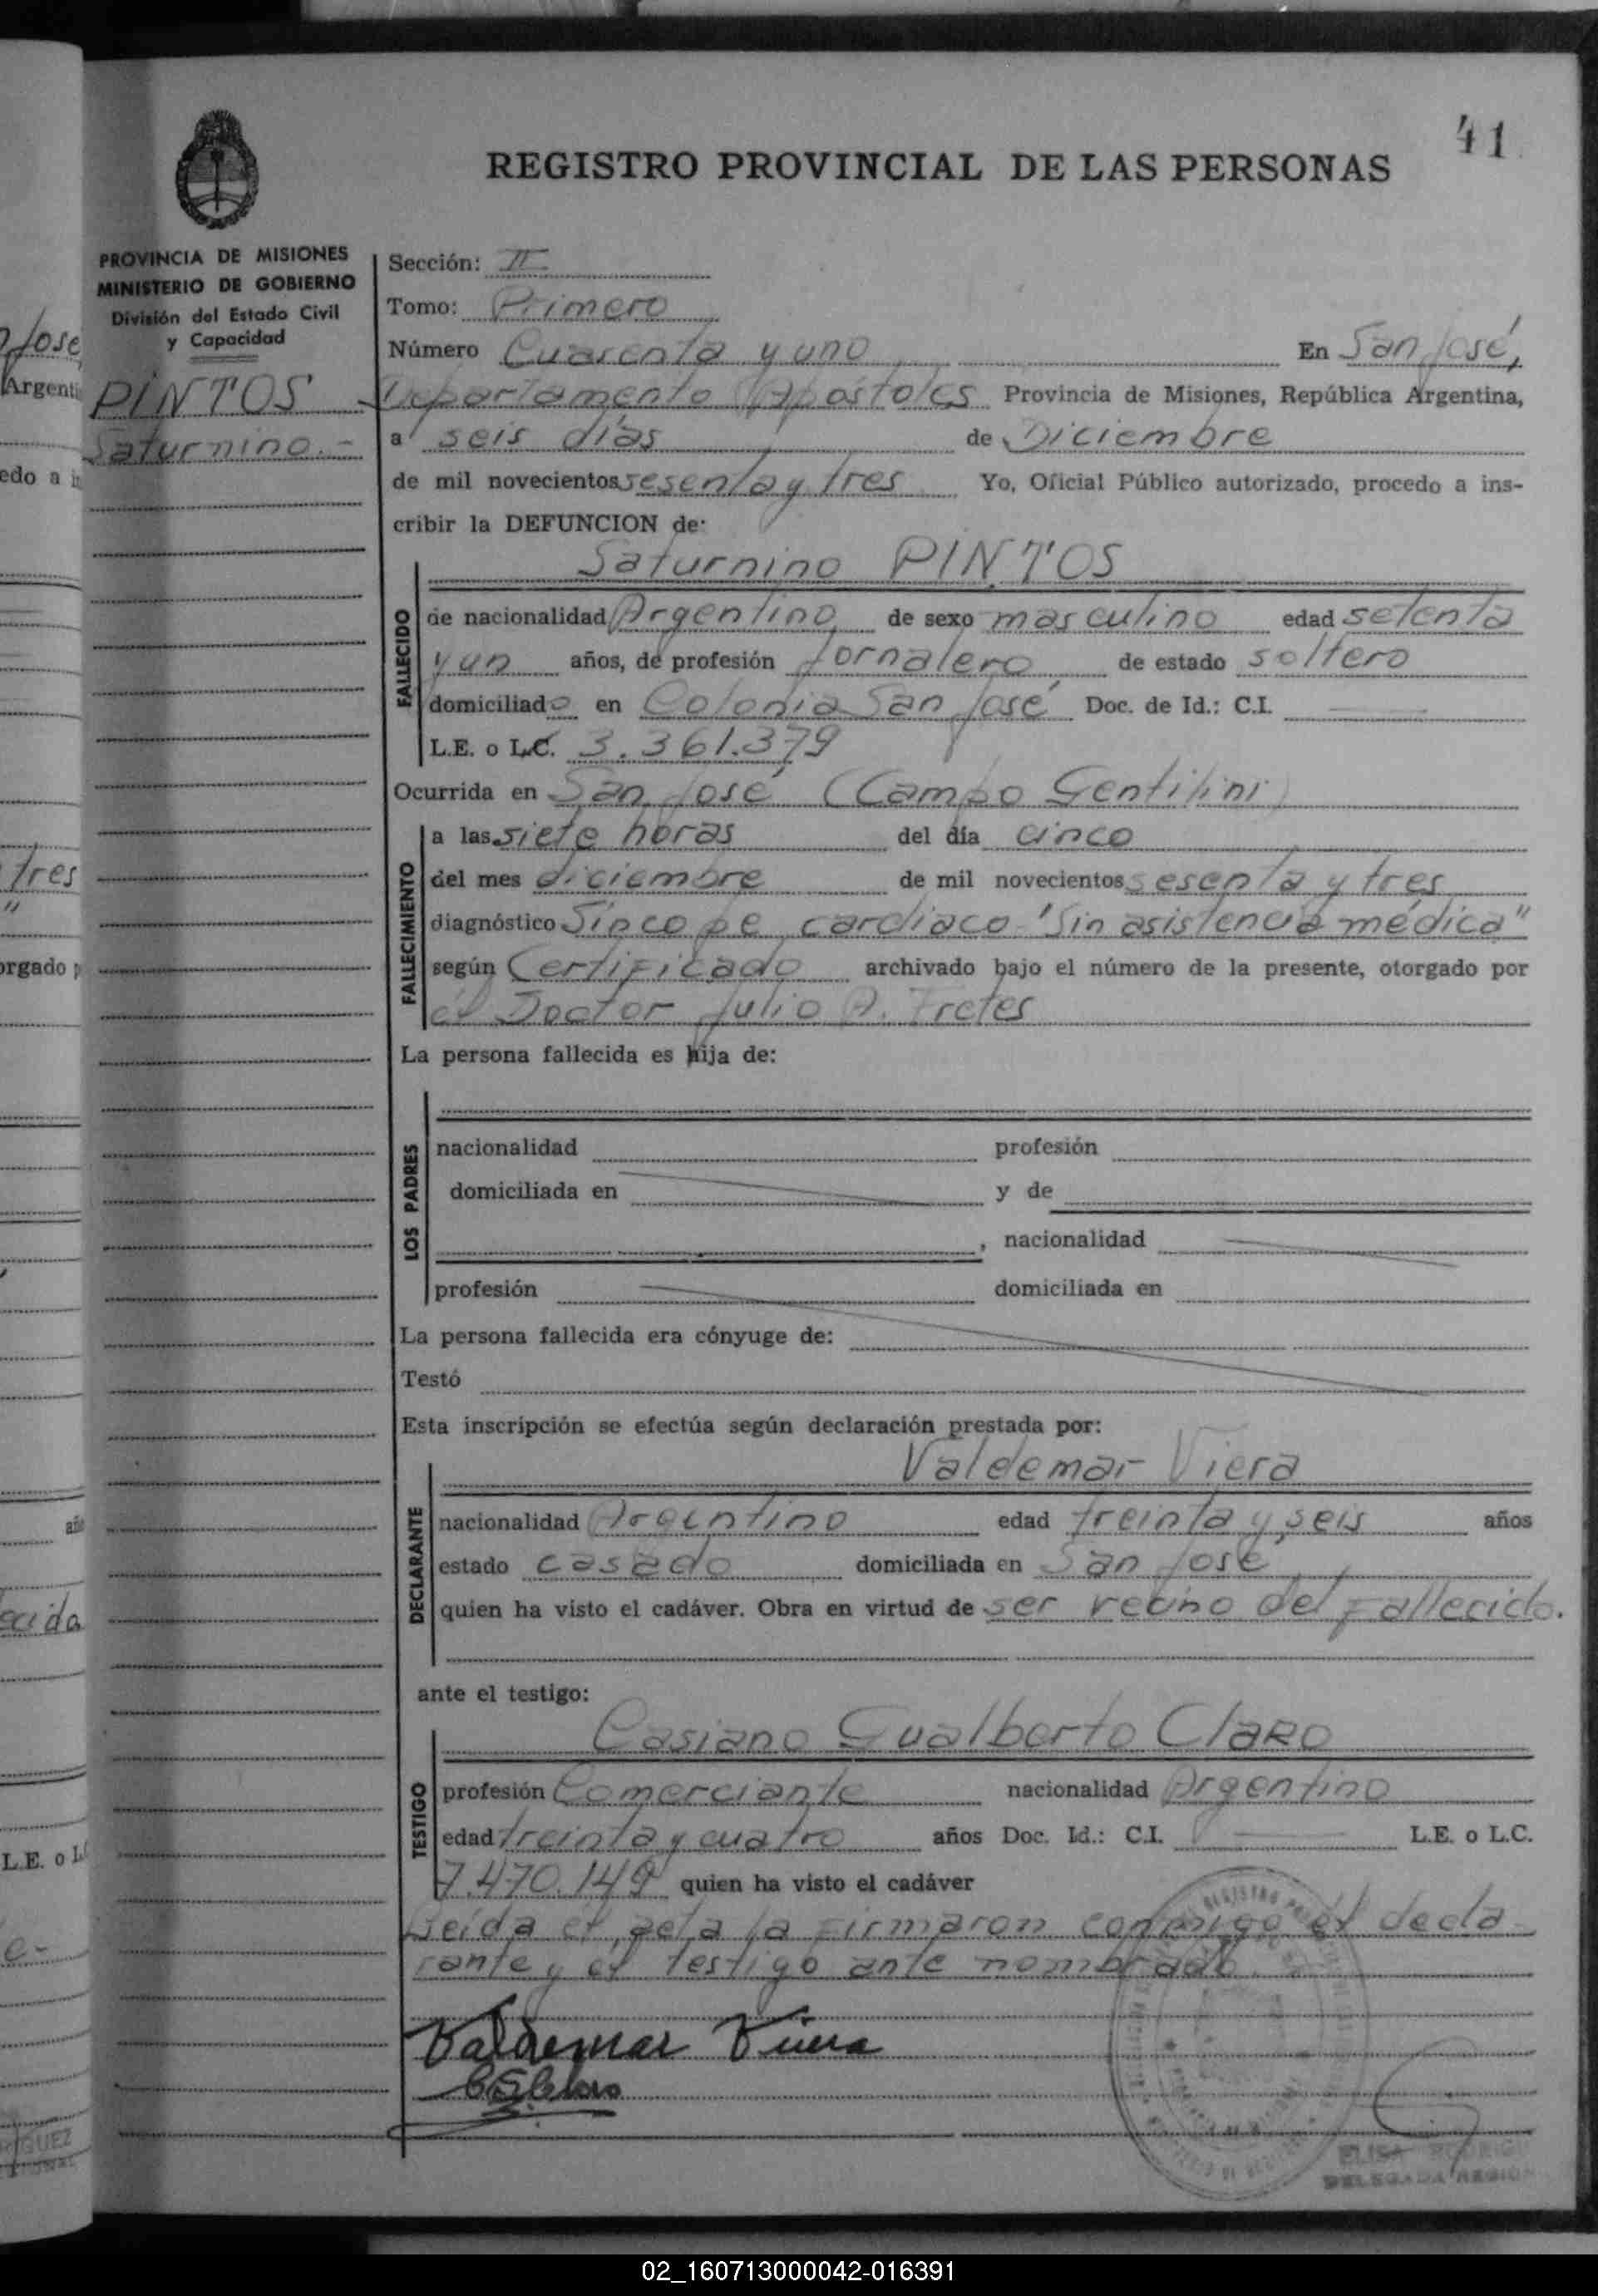 41
REGISTRO PROVINCIAL DE LAS PERSONAS
PROVINCIA DE MISIONES
MINISTERIO DE GOBIERNO
División del Estado Civil
y Capacidad
PINTOS
Saturnino.-
Sección: II
Tomo: Primero
Número Cuarenta y uno En San José,
Departamento Apóstoles Provincia de Misiones, República Argentina,
a seis días de Diciembre
de mil novecientos sesenta y tres Yo, Oficial Público autorizado, procedo a ins-
cribir la DEFUNCION de:
Saturnino PINTOS
FALLECIDO
de nacionalidad Argentino de sexo masculino edad setenta
y un años, de profesión Jornalero de estado soltero
domiciliado en Colonia San José Doc. de Id.: C.I.
L.E. o L.C. 3.361.379
Ocurrida en San José (Campo Gentilini)
FALLECIMIENTO
a las siete horas del día cinco
del mes diciembre de mil novecientos sesenta y tres
diagnóstico Sincope cardiaco "Sin asistencia médica"
según Certificado archivado bajo el número de la presente, otorgado por
el Doctor Julio A. Fretes
La persona fallecida es hija de:
LOS PADRES
nacionalidad profesión
domiciliada en y de
, nacionalidad
profesión domiciliada en
La persona fallecida era cónyuge de:
Testó
Esta inscripción se efectúa según declaración prestada por:
Valdemar Viera
DECLARANTE
nacionalidad Argentino edad treinta y seis años
estado casado domiciliada en San José
quien ha visto el cadáver. Obra en virtud de ser vecino del fallecido.
ante el testigo:
Casiano Gualberto Claro
TESTIGO
profesión Comerciante nacionalidad Argentino
edad treinta y cuatro años Doc. Id.: C.I. L.E. o L.C.
7.470.149 quien ha visto el cadáver
Leída el acta la firmaron conmigo el decla-
rante y el testigo ante nombrado.
Valdemar Viera
ELISA
DELEGADA
José
Argenti
edo a in
tres
"
orgado p
año
ecida
L.E. o L
e-
GUEZ
02_160713000042-016391